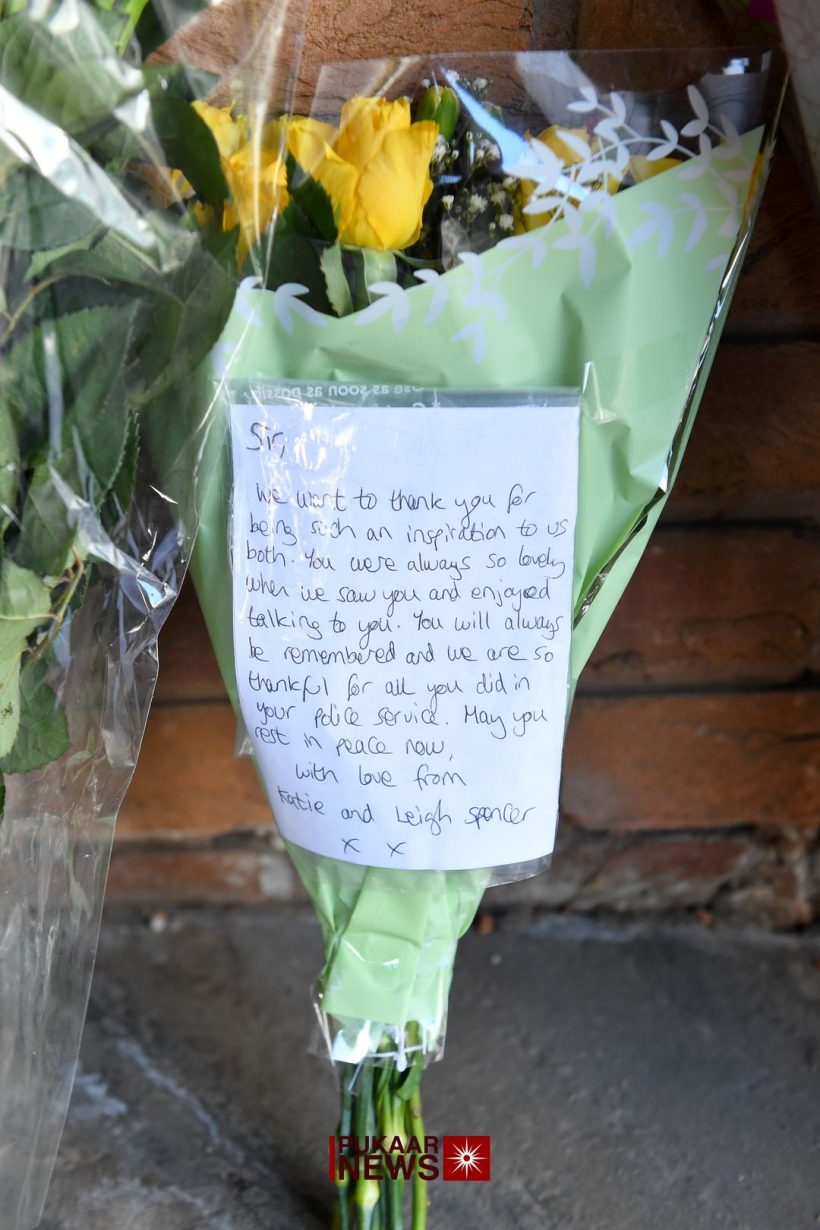 Use as soon as possib
Sir,
We want to thank you for
being such an inspiration to us
both. You were always so lovely
when we saw you and enjoyed
talking to you. You will always
be remembered and we are so
thankful for all you did in
your Police service. May you
rest in peace now,
with love from
Katie and Leigh Spencer
x x
PUKAAR
NEWS